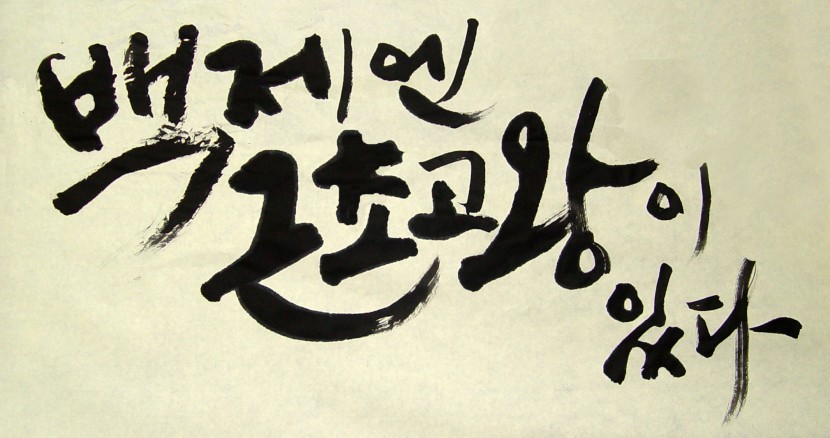 백제엔
근초고왕이
있다